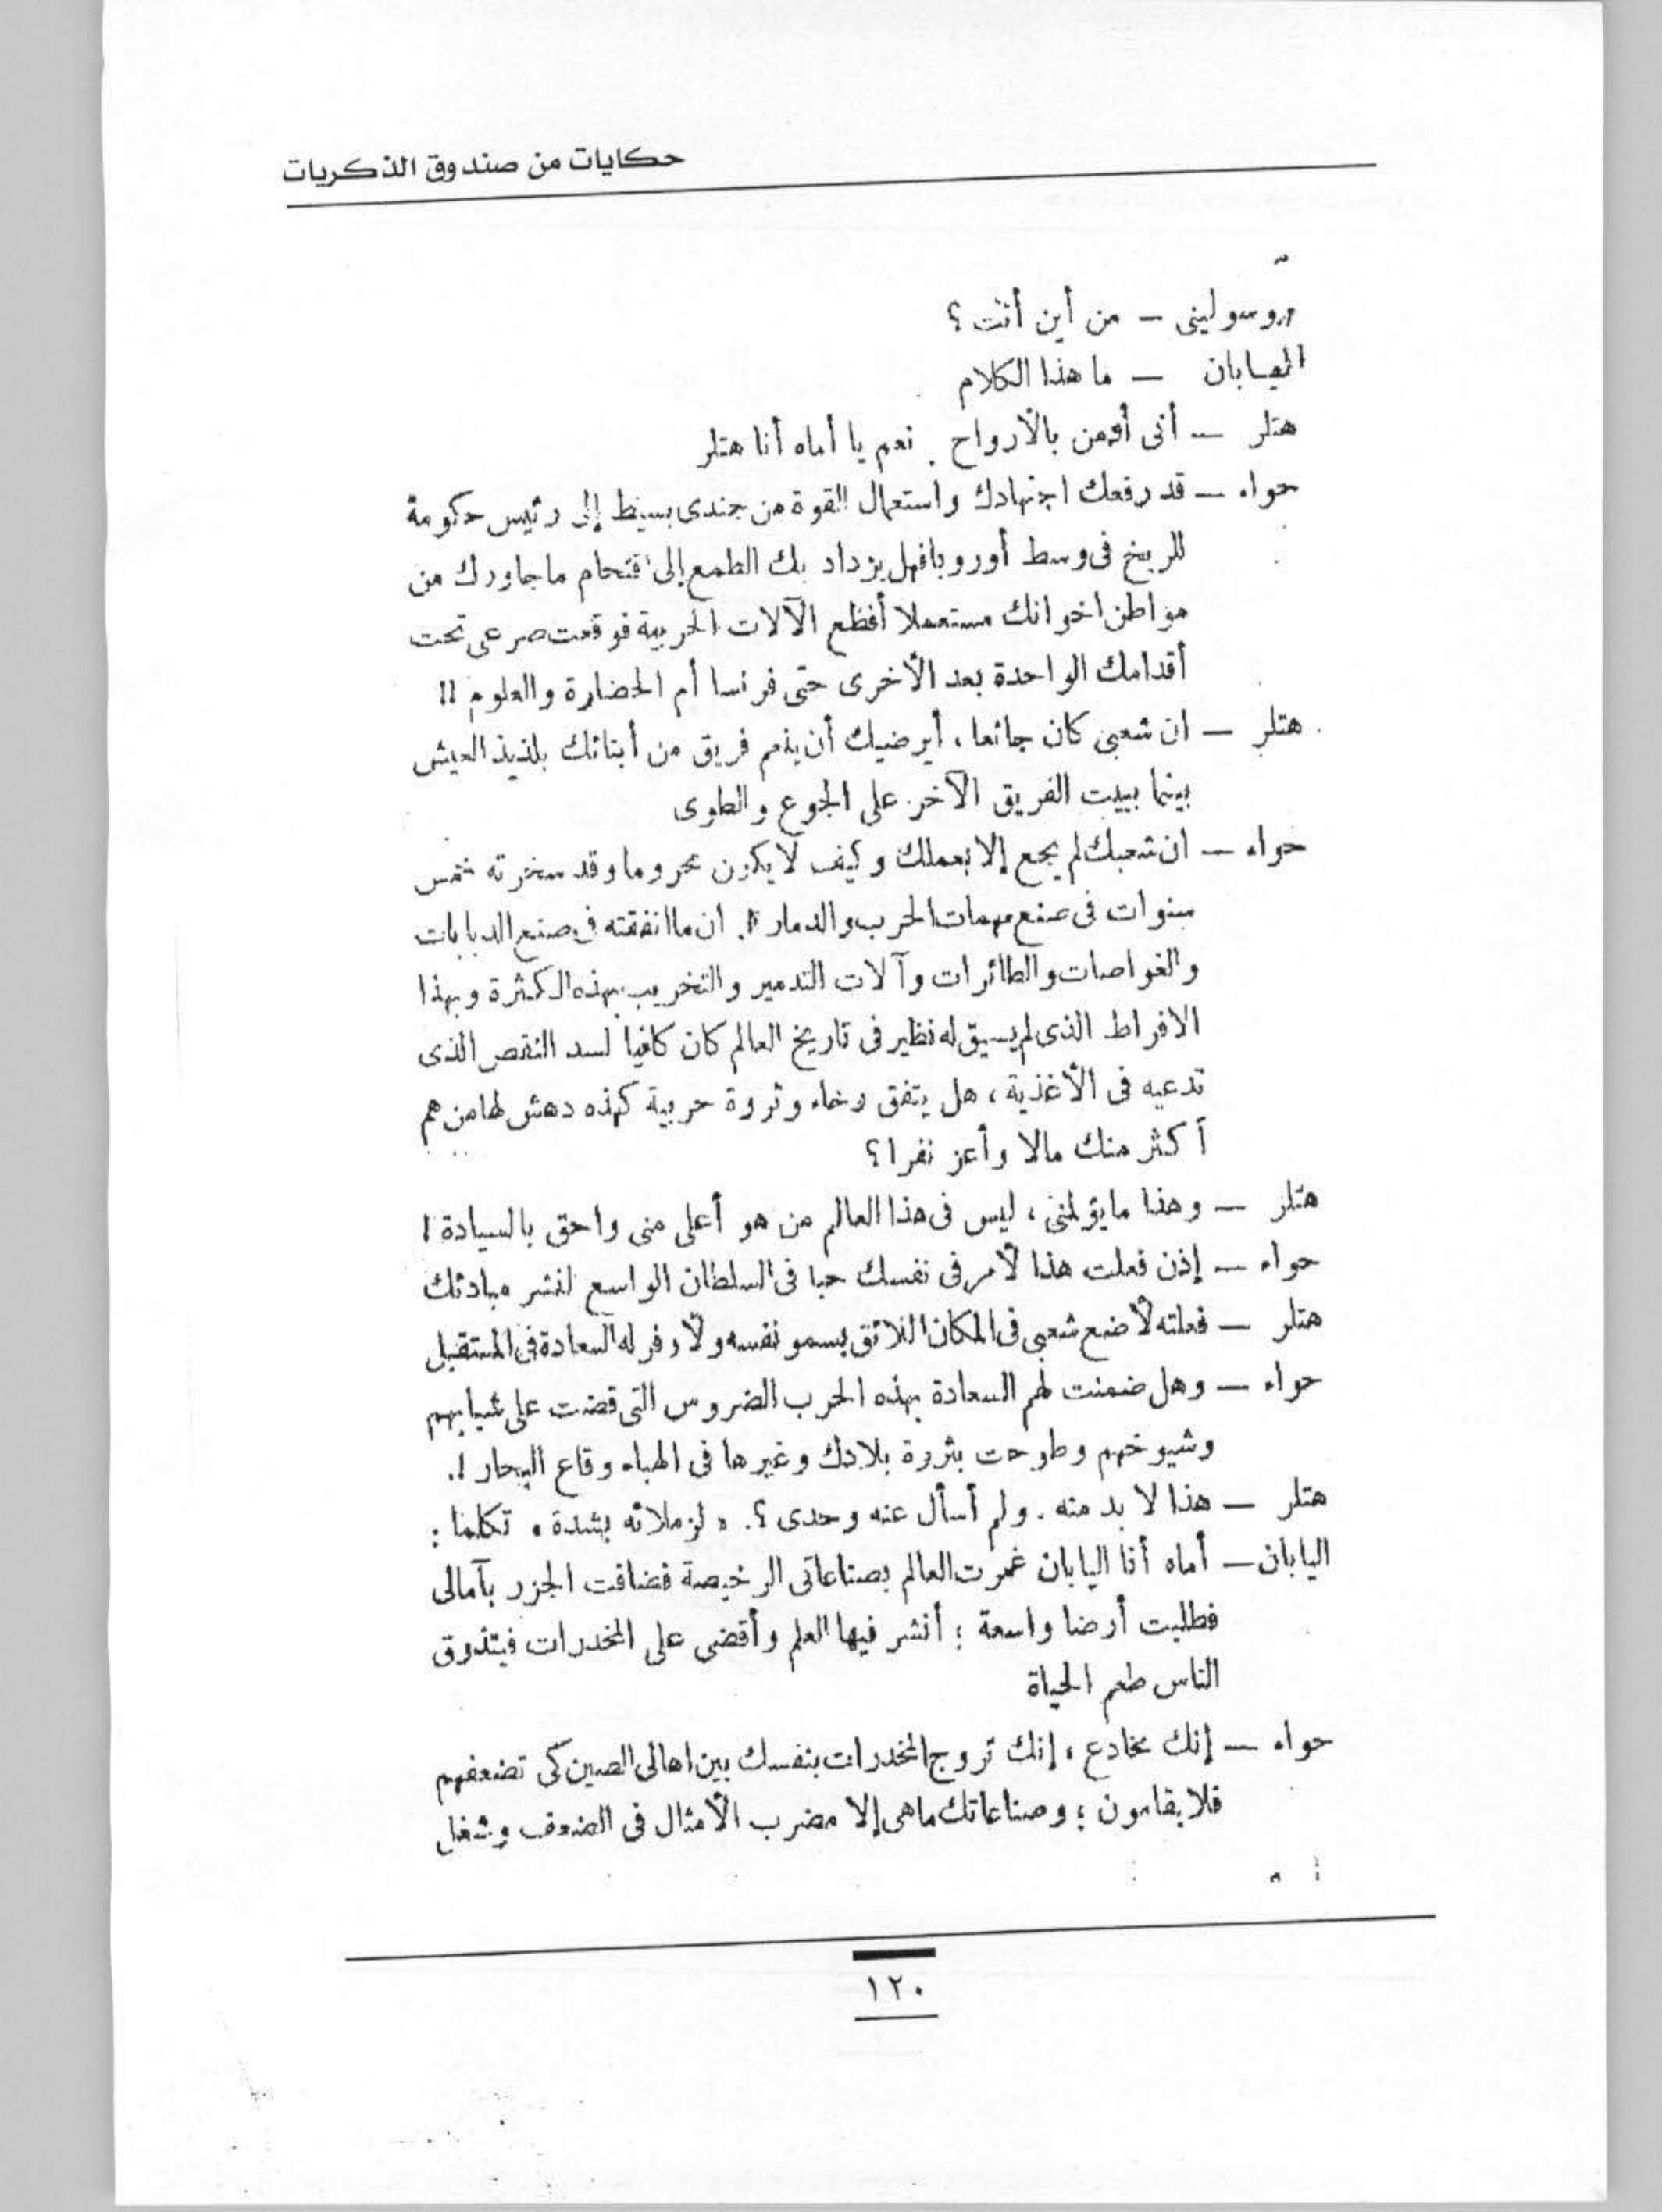 حكايات من صندوق الذكريات
موسوليني — من أين أنت؟
اليابان — ما هذا الكلام
هتلر — أنى أؤمن بالأرواح. نعم يا أماه أنا هتلر
حواء — قد رفعك اجتهادك واستعمال القوة من جندى بسيط إلى رئيس حكومة
للريخ فى وسط أوروبا فهل يزداد بك الطمع إلى اقتحام ما جاورك من
مواطن اخوانك مستعملا أفظع الآلات الحربية فوقعت صرعى تحت
أقدامك الواحدة بعد الأخرى حتى فرنسا أم الحضارة والعلوم !!
هتلر — ان شعبى كان جائعا، أيرضيك أن ينعم فريق من أبنائك بلذيذ العيش
بينما يبيت الفريق الآخر على الجوع والطوى
حواء — ان شعبك لم يجع إلا بعملك وكيف لا يكون محروما وقد سخرته خمس
سنوات فى صنع مهمات الحرب والدمار !. ان ما انفقته فى صنع الدبابات
والغواصات والطائرات وآلات التدمير والتخريب بهذه الكثرة وبهذا
الافراط الذى لم يسبق له نظير فى تاريخ العالم كان كافيا لسد النقص الذى
تدعيه فى الأغذية، هل يتفق رخاء وثروة حربية كهذه دهش لها من هم
أكثر منك مالا وأعز نفرا؟
هتلر — وهذا ما يؤلمنى، ليس فى هذا العالم من هو أعلى منى واحق بالسيادة !
حواء — إذن فعلت هذا لأمر فى نفسك حبا فى السلطان الواسع لنشر مبادئك
هتلر — فعلته لأضع شعبى فى المكان اللائق بسمو نفسه ولأوفر له السعادة فى المستقبل
حواء — وهل ضمنت لهم السعادة بهذه الحرب الضروس التى قضت على شبابهم
وشيوخهم وطوحت بثروة بلادك وغيرها فى الهباء وقاع البحار !.
هتلر — هذا لا بد منه. ولم أسأل عنه وحدى ؟. « لزملائه بشدة » تكلما :
اليابان — أماه أنا اليابان غمرت العالم بصناعاتى الرخيصة فضاقت الجزر بآمالى
فطلبت أرضا واسعة ؛ أنشر فيها العلم وأقضى على المخدرات فيتذوق
الناس طعم الحياة
حواء — إنك مخادع، إنك تروج المخدرات بنفسك بين اهالى الصين كى تضعفهم
فلا يقامون ؛ وصناعاتك ما هى إلا مضرب الأمثال فى الضعف وشغل
١٢٠